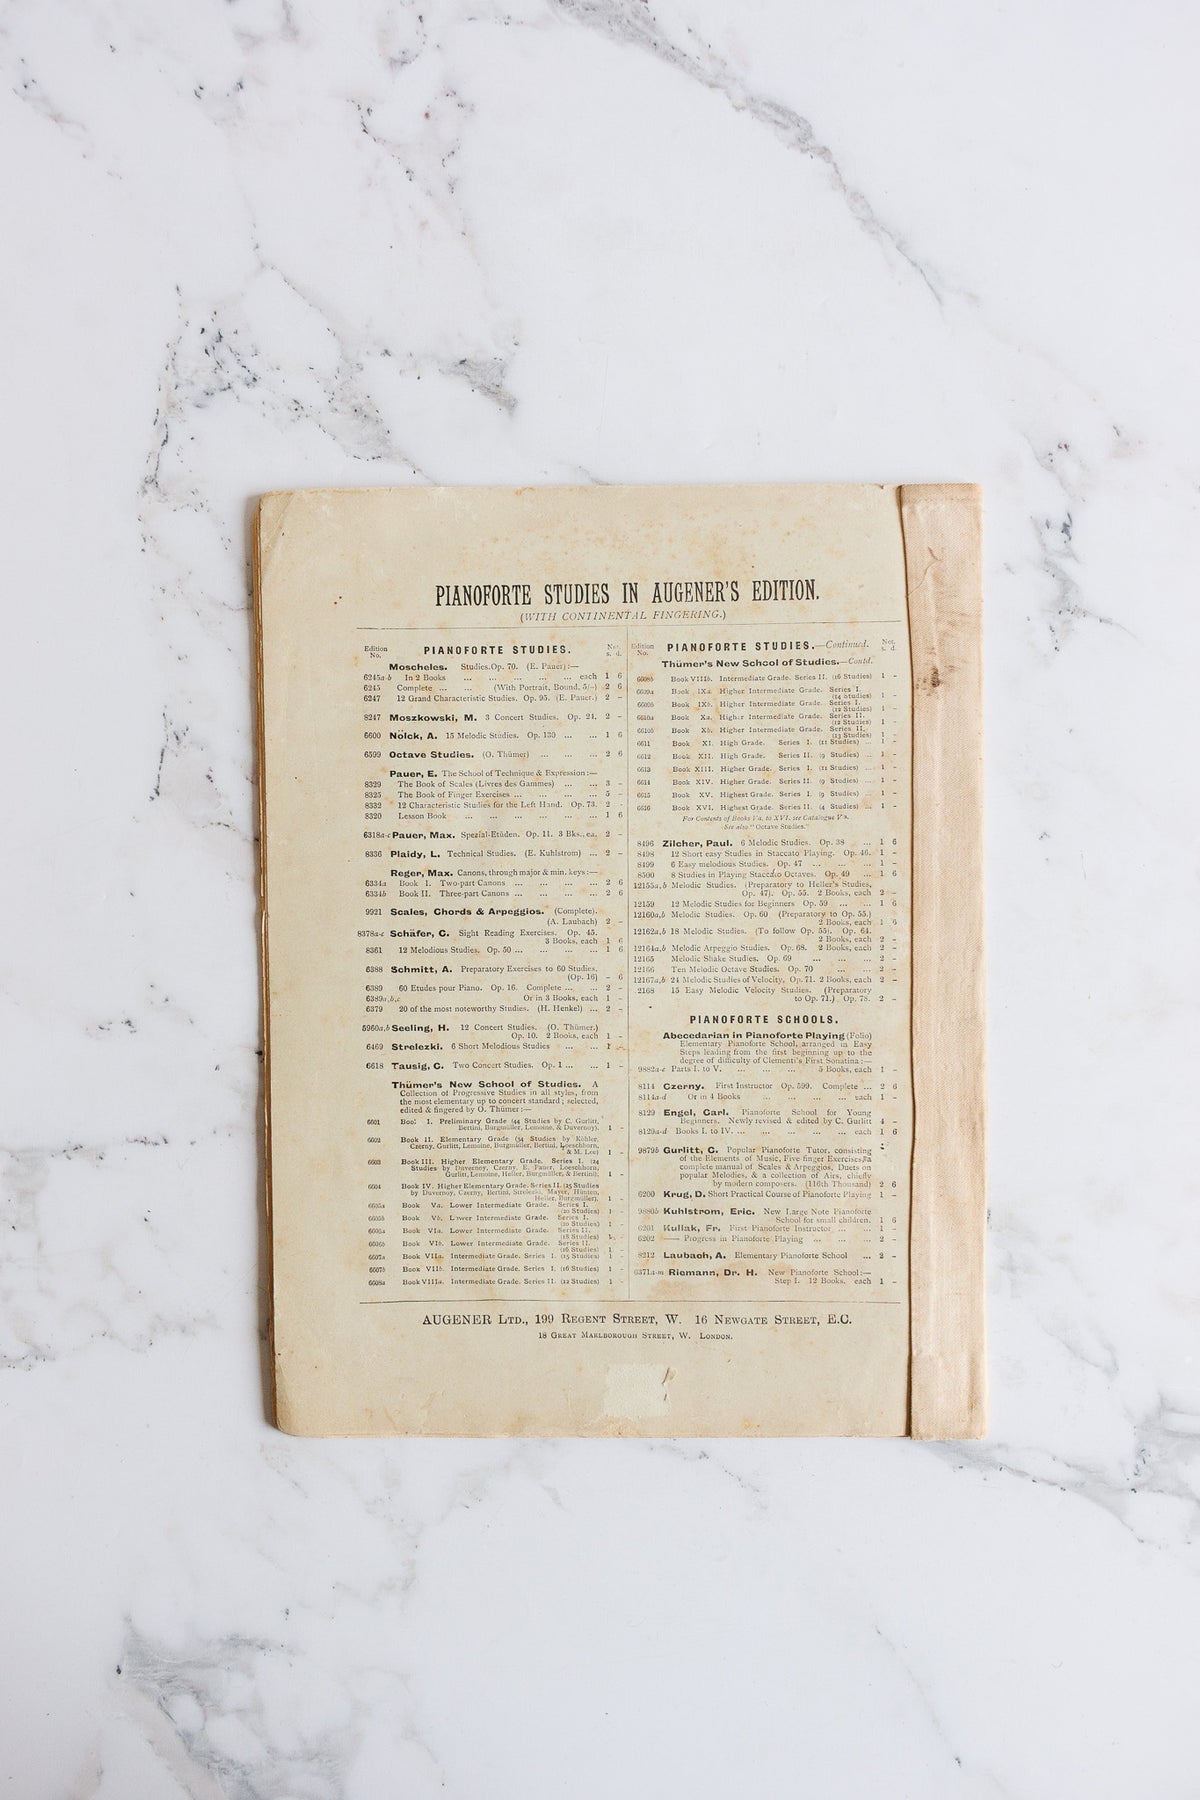 PIANOFORTE STUDIES IN AUGENER'S EDITION.
(WITH CONTINENTAL FINGERING.)
Edition No. PIANOFORTE STUDIES. Net. s. d.
Moscheles. Studies. Op. 70. (E. Pauer) :—
6245a-b In 2 Books ... ... ... ... ... each 1 6
6245 Complete ... ... (With Portrait, Bound, 5/-) 2 6
6247 12 Grand Characteristic Studies. Op. 95. (E. Pauer.) 2 –
8247 Moszkowski, M. 3 Concert Studies. Op. 24. 2 –
6600 Nölck, A. 15 Melodic Studies. Op. 130 ... ... 1 6
6599 Octave Studies. (O. Thümer) ... ... ... 2 6
Pauer, E. The School of Technique & Expression:—
8329 The Book of Scales (Livres des Gammes) ... ... 3 –
8325 The Book of Finger Exercises ... ... ... ... 5 –
8332 12 Characteristic Studies for the Left Hand. Op. 73. 2 -
8320 Lesson Book ... ... ... ... ... ... 1 6
6318a-c Pauer, Max. Spezial-Etüden. Op. 11. 3 Bks., ea. 2 –
8336 Plaidy, L. Technical Studies. (E. Kuhlstrom) ... 2 –
Reger, Max. Canons, through major & min. keys:—
6334a Book I. Two-part Canons ... ... ... ... 2 6
6334b Book II. Three-part Canons ... ... ... ... 2 6
9921 Scales, Chords & Arpeggios. (Complete).
(A. Laubach) 2 –
8378a-c Schäfer, C. Sight Reading Exercises. Op. 45.
3 Books, each 1 6
8361 12 Melodious Studies. Op. 50 ... ... ... ... 1 6
6388 Schmitt, A. Preparatory Exercises to 60 Studies.
(Op. 16) – 6
6389 60 Etudes pour Piano. Op. 16. Complete ... ... 2 –
6389a,b,c Or in 3 Books, each 1 –
6379 20 of the most noteworthy Studies. (H. Henkel) ... 2 –
5960a,b Seeling, H. 12 Concert Studies. (O. Thümer.)
Op. 10. 2 Books, each 1 –
6469 Strelezki. 6 Short Melodious Studies ... ... 1
6618 Tausig, C. Two Concert Studies. Op. 1 ... ... 1 –
Thümer's New School of Studies. A
Collection of Progressive Studies in all styles, from
the most elementary up to concert standard; selected,
edited & fingered by O. Thümer:—
6601 Book I. Preliminary Grade (44 Studies by C. Gurlitt,
Bertini, Burgmüller, Lemoine, & Duvernoy). 1 -
6602 Book II. Elementary Grade (34 Studies by Köhler,
Czerny, Gurlitt, Lemoine, Burgmüller, Bertini, Loeschhorn,
& M. Lee) 1 –
6603 Book III. Higher Elementary Grade. Series I. (24
Studies by Duvernoy, Czerny, E. Pauer, Loeschhorn,
Gurlitt, Lemoine, Heller, Burgmüller, & Bertini). 1 -
6604 Book IV. Higher Elementary Grade. Series II. (25 Studies
by Duvernoy, Czerny, Bertini, Strelezki, Mayer, Hünten,
Heller, Burgmüller). 1 -
6605a Book Va. Lower Intermediate Grade. Series I.
(20 Studies) 1 -
6605b Book Vb. Lower Intermediate Grade. Series I.
(20 Studies) 1 -
6606a Book VIa. Lower Intermediate Grade. Series II.
(18 Studies) 1 -
6606b Book VIb. Lower Intermediate Grade. Series II.
(16 Studies) 1 -
6607a Book VIIa. Intermediate Grade. Series I. (15 Studies) 1 -
6607b Book VIIb. Intermediate Grade. Series I. (16 Studies) 1 -
6608a Book VIIIa. Intermediate Grade. Series II. (12 Studies) 1 -
Edition No. PIANOFORTE STUDIES.—Continued. Net. s. d.
Thümer's New School of Studies.—Contd.
6608b Book VIIIb. Intermediate Grade. Series II. (16 Studies) 1 –
6609a Book IXa. Higher Intermediate Grade. Series I.
(14 Studies) 1 –
6609b Book IXb. Higher Intermediate Grade. Series I.
(12 Studies) 1 –
6610a Book Xa. Higher Intermediate Grade. Series II.
(12 Studies) 1 –
6610b Book Xb. Higher Intermediate Grade. Series II.
(13 Studies) 1 –
6611 Book XI. High Grade. Series I. (11 Studies) ... 1 –
6612 Book XII. High Grade. Series II. (9 Studies) ... 1 –
6613 Book XIII. Higher Grade. Series I. (11 Studies) ... 1 –
6614 Book XIV. Higher Grade. Series II. (9 Studies) ... 1 –
6615 Book XV. Highest Grade. Series I. (9 Studies) ... 1 –
6616 Book XVI. Highest Grade. Series II. (4 Studies) ... 1 –
For Contents of Books Va. to XVI. see Catalogue
See also "Octave Studies."
8496 Zilcher, Paul. 6 Melodic Studies. Op. 38 ... 1 6
8498 12 Short easy Studies in Staccato Playing. Op. 46. 1 –
8499 6 Easy melodious Studies. Op. 47 ... ... ... 1 –
8500 8 Studies in Playing Staccato Octaves. Op. 49 ... 1 6
12155a,b Melodic Studies. (Preparatory to Heller's Studies,
Op. 47). Op. 55. 2 Books, each 2 –
12159 12 Melodic Studies for Beginners Op. 59 ... ... 1 6
12160a,b Melodic Studies. Op. 60 (Preparatory to Op. 55.)
2 Books, each 1 6
12162a,b 18 Melodic Studies. (To follow Op. 55). Op. 64.
2 Books, each 2 –
12164a,b Melodic Arpeggio Studies. Op. 68. 2 Books, each 2 –
12165 Melodic Shake Studies. Op. 69 ... ... ... 2 –
12166 Ten Melodic Octave Studies. Op. 70 ... ... 2 –
12167a,b 24 Melodic Studies of Velocity, Op. 71. 2 Books, each 2 –
2168 15 Easy Melodic Velocity Studies. (Preparatory
to Op. 71.) Op. 78. 2 –
PIANOFORTE SCHOOLS.
Abecedarian in Pianoforte Playing (Folio)
Elementary Pianoforte School, arranged in Easy
Steps leading from the first beginning up to the
degree of difficulty of Clementi's First Sonatina:—
9882a-e Parts I. to V. ... ... ... 5 Books, each 1 –
8114 Czerny. First Instructor Op. 599. Complete ... 2 6
8114a-d Or in 4 Books ... ... ... ... each 1 –
8129 Engel, Carl. Pianoforte School for Young
Beginners. Newly revised & edited by C. Gurlitt 4 –
8129a-d Books I. to IV. ... ... ... ... ... each 1 6
9879b Gurlitt, C. Popular Pianoforte Tutor, consisting
of the Elements of Music, Five finger Exercises, a
complete manual of Scales & Arpeggios, Duets on
popular Melodies, & a collection of Airs, chiefly
by modern composers. (116th Thousand) 2 6
6200 Krug, D. Short Practical Course of Pianoforte Playing 1 –
9880b Kuhlstrom, Eric. New Large Note Pianoforte
School for small children. 1 6
6201 Kullak, Fr. First Pianoforte Instructor ... ... 1 –
6202 —— Progress in Pianoforte Playing ... ... ... 2 –
8212 Laubach, A. Elementary Pianoforte School ... 2 –
6371a-m Riemann, Dr. H. New Pianoforte School:—
Step I. 12 Books. each 1 –
AUGENER LTD., 199 REGENT STREET, W. 16 NEWGATE STREET, E.C.
18 GREAT MARLBOROUGH STREET, W. LONDON.